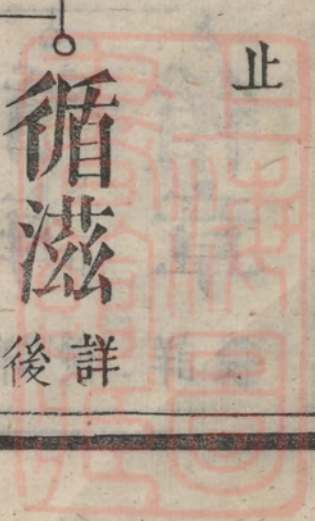 止
循滋
詳
後